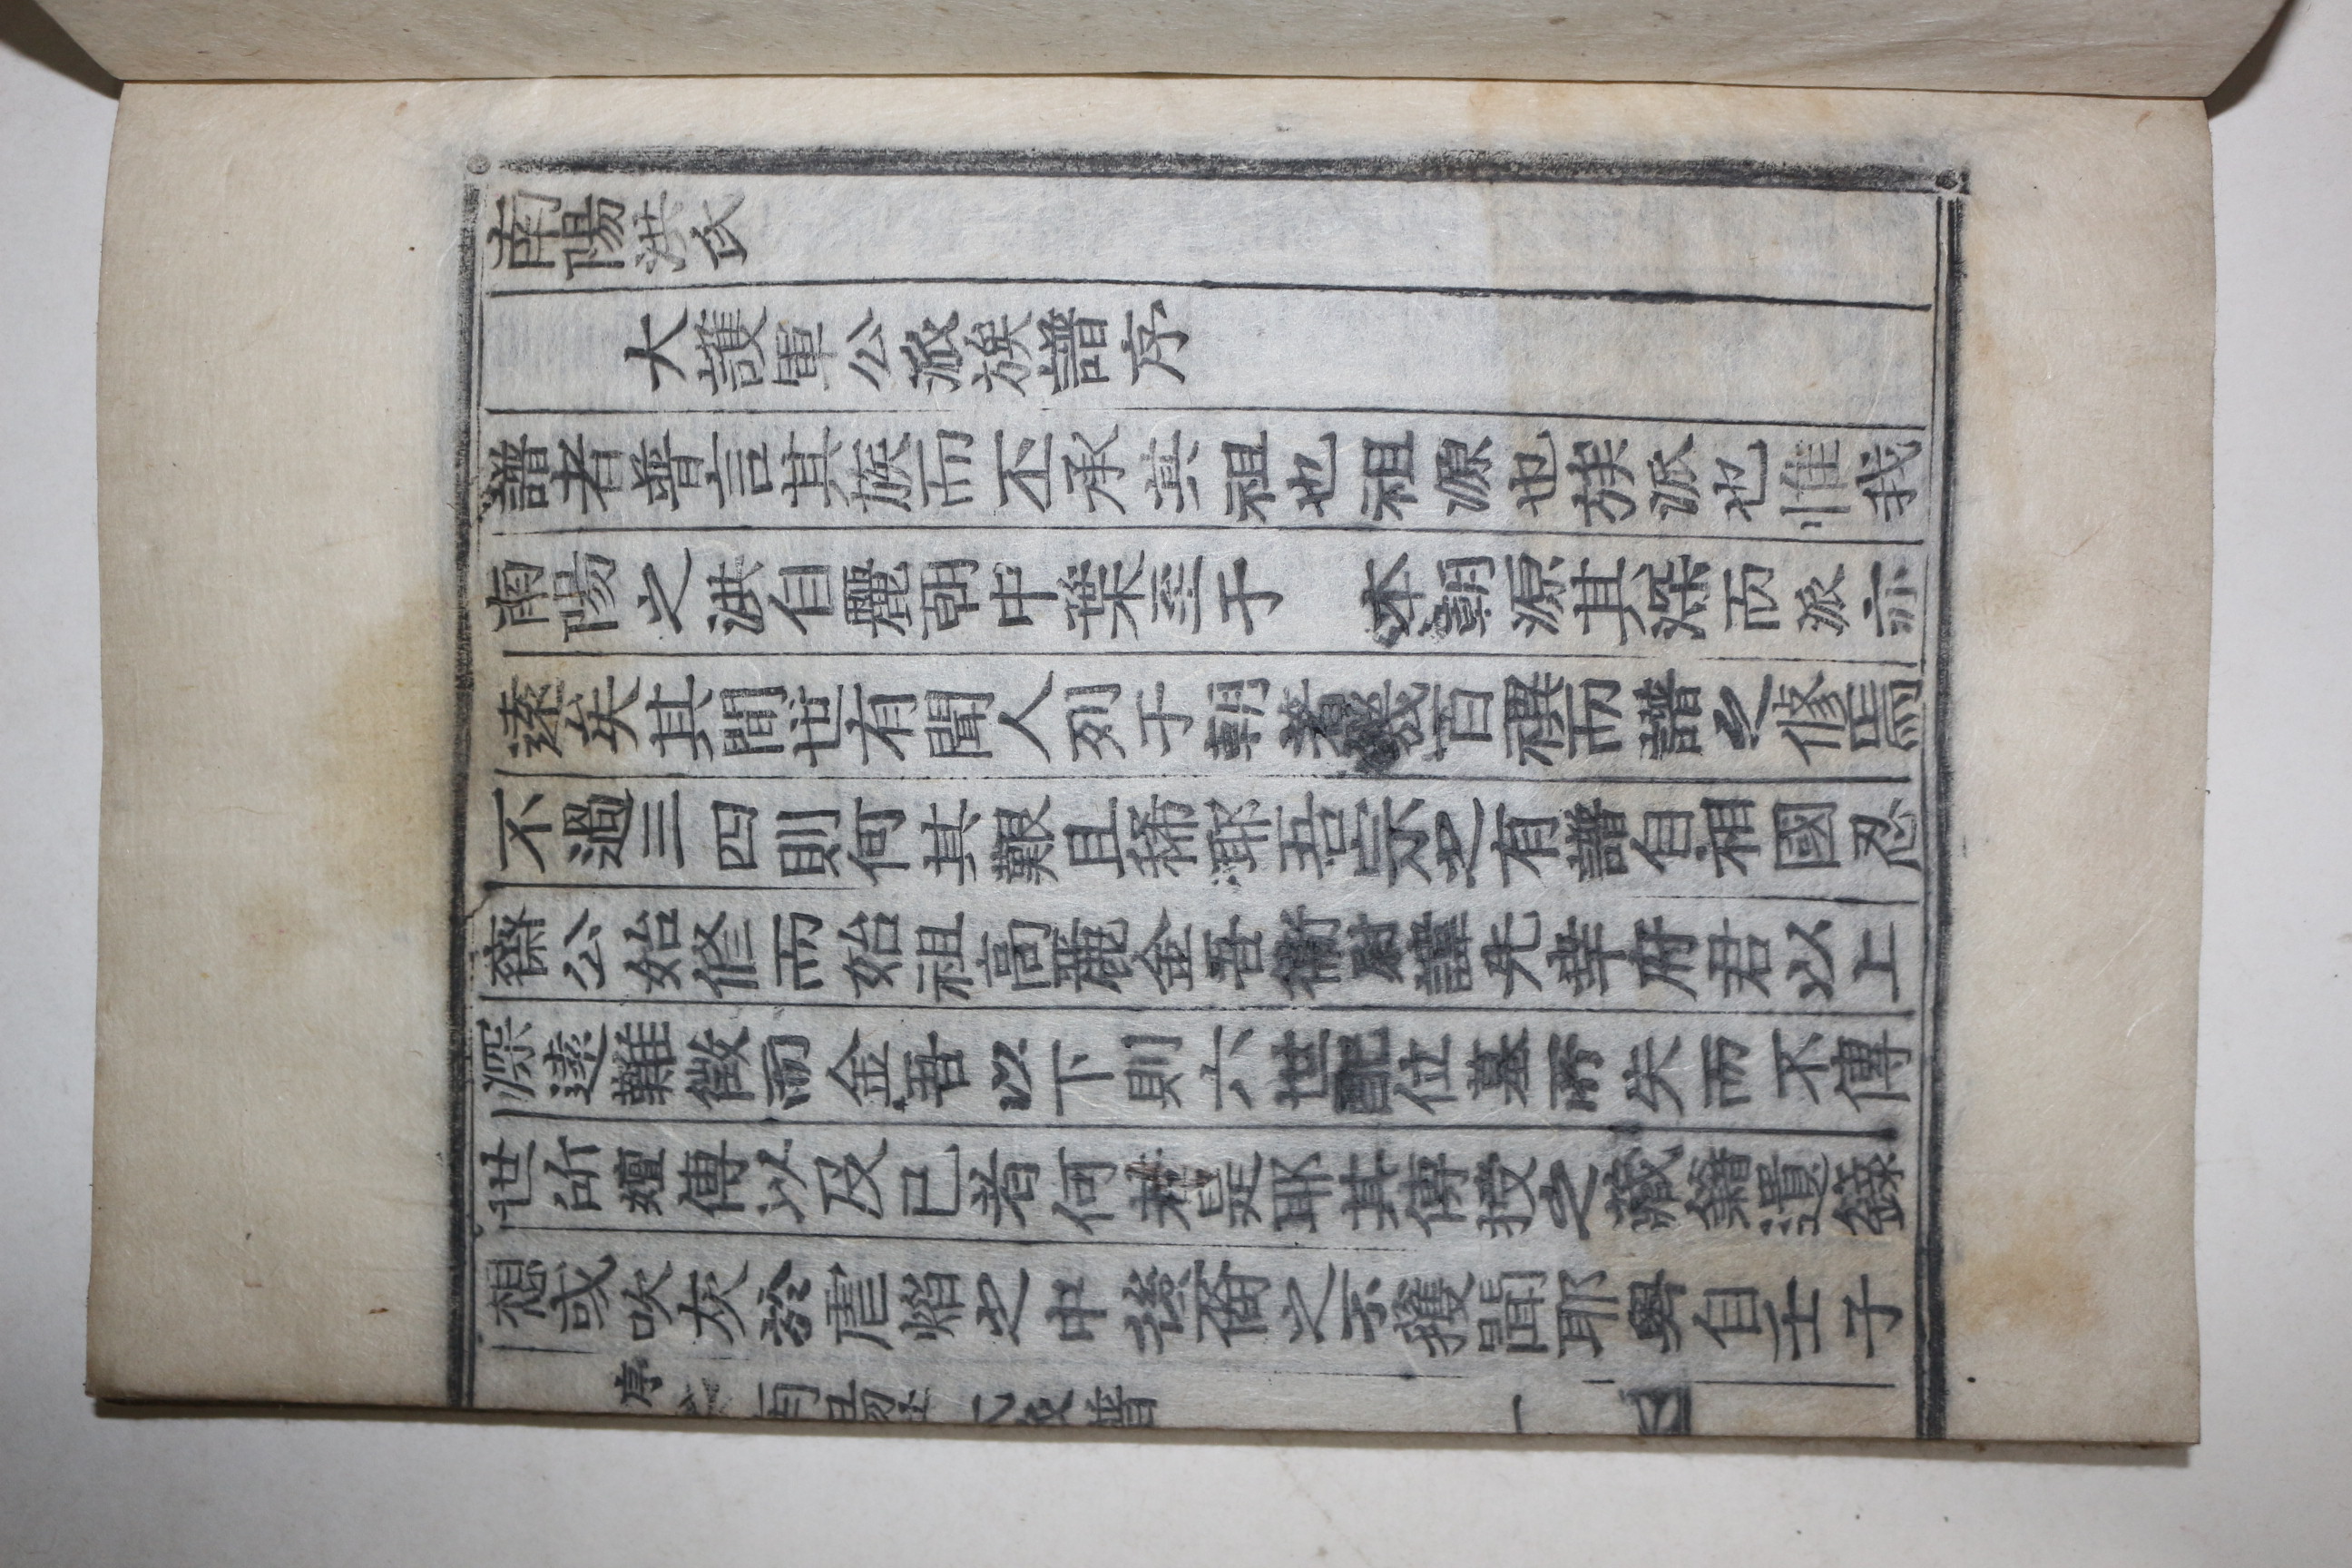 南陽洪氏
大護軍公派族譜序
譜者普言其族而丕承其祖也祖源也族派也惟我
南陽之洪自麗朝中葉至于 本朝源其深而派亦
遠矣其間世有聞人列于朝著幾百禩而譜之修焉
不過三四則何其艱且稀耶吾宗之有譜自相國忍
齋公始修而始祖高麗金吾衛尉諱先幸府君以上
深遠難徵而金吾以下則六世配位墓所失而不傳
世所嬗傳以及已者何若是耶其傳授之藏籍遺錄
想或吹灰於唐燼之中後裔之未獲聞耶粤自壬子
序 南陽洪氏族譜 一